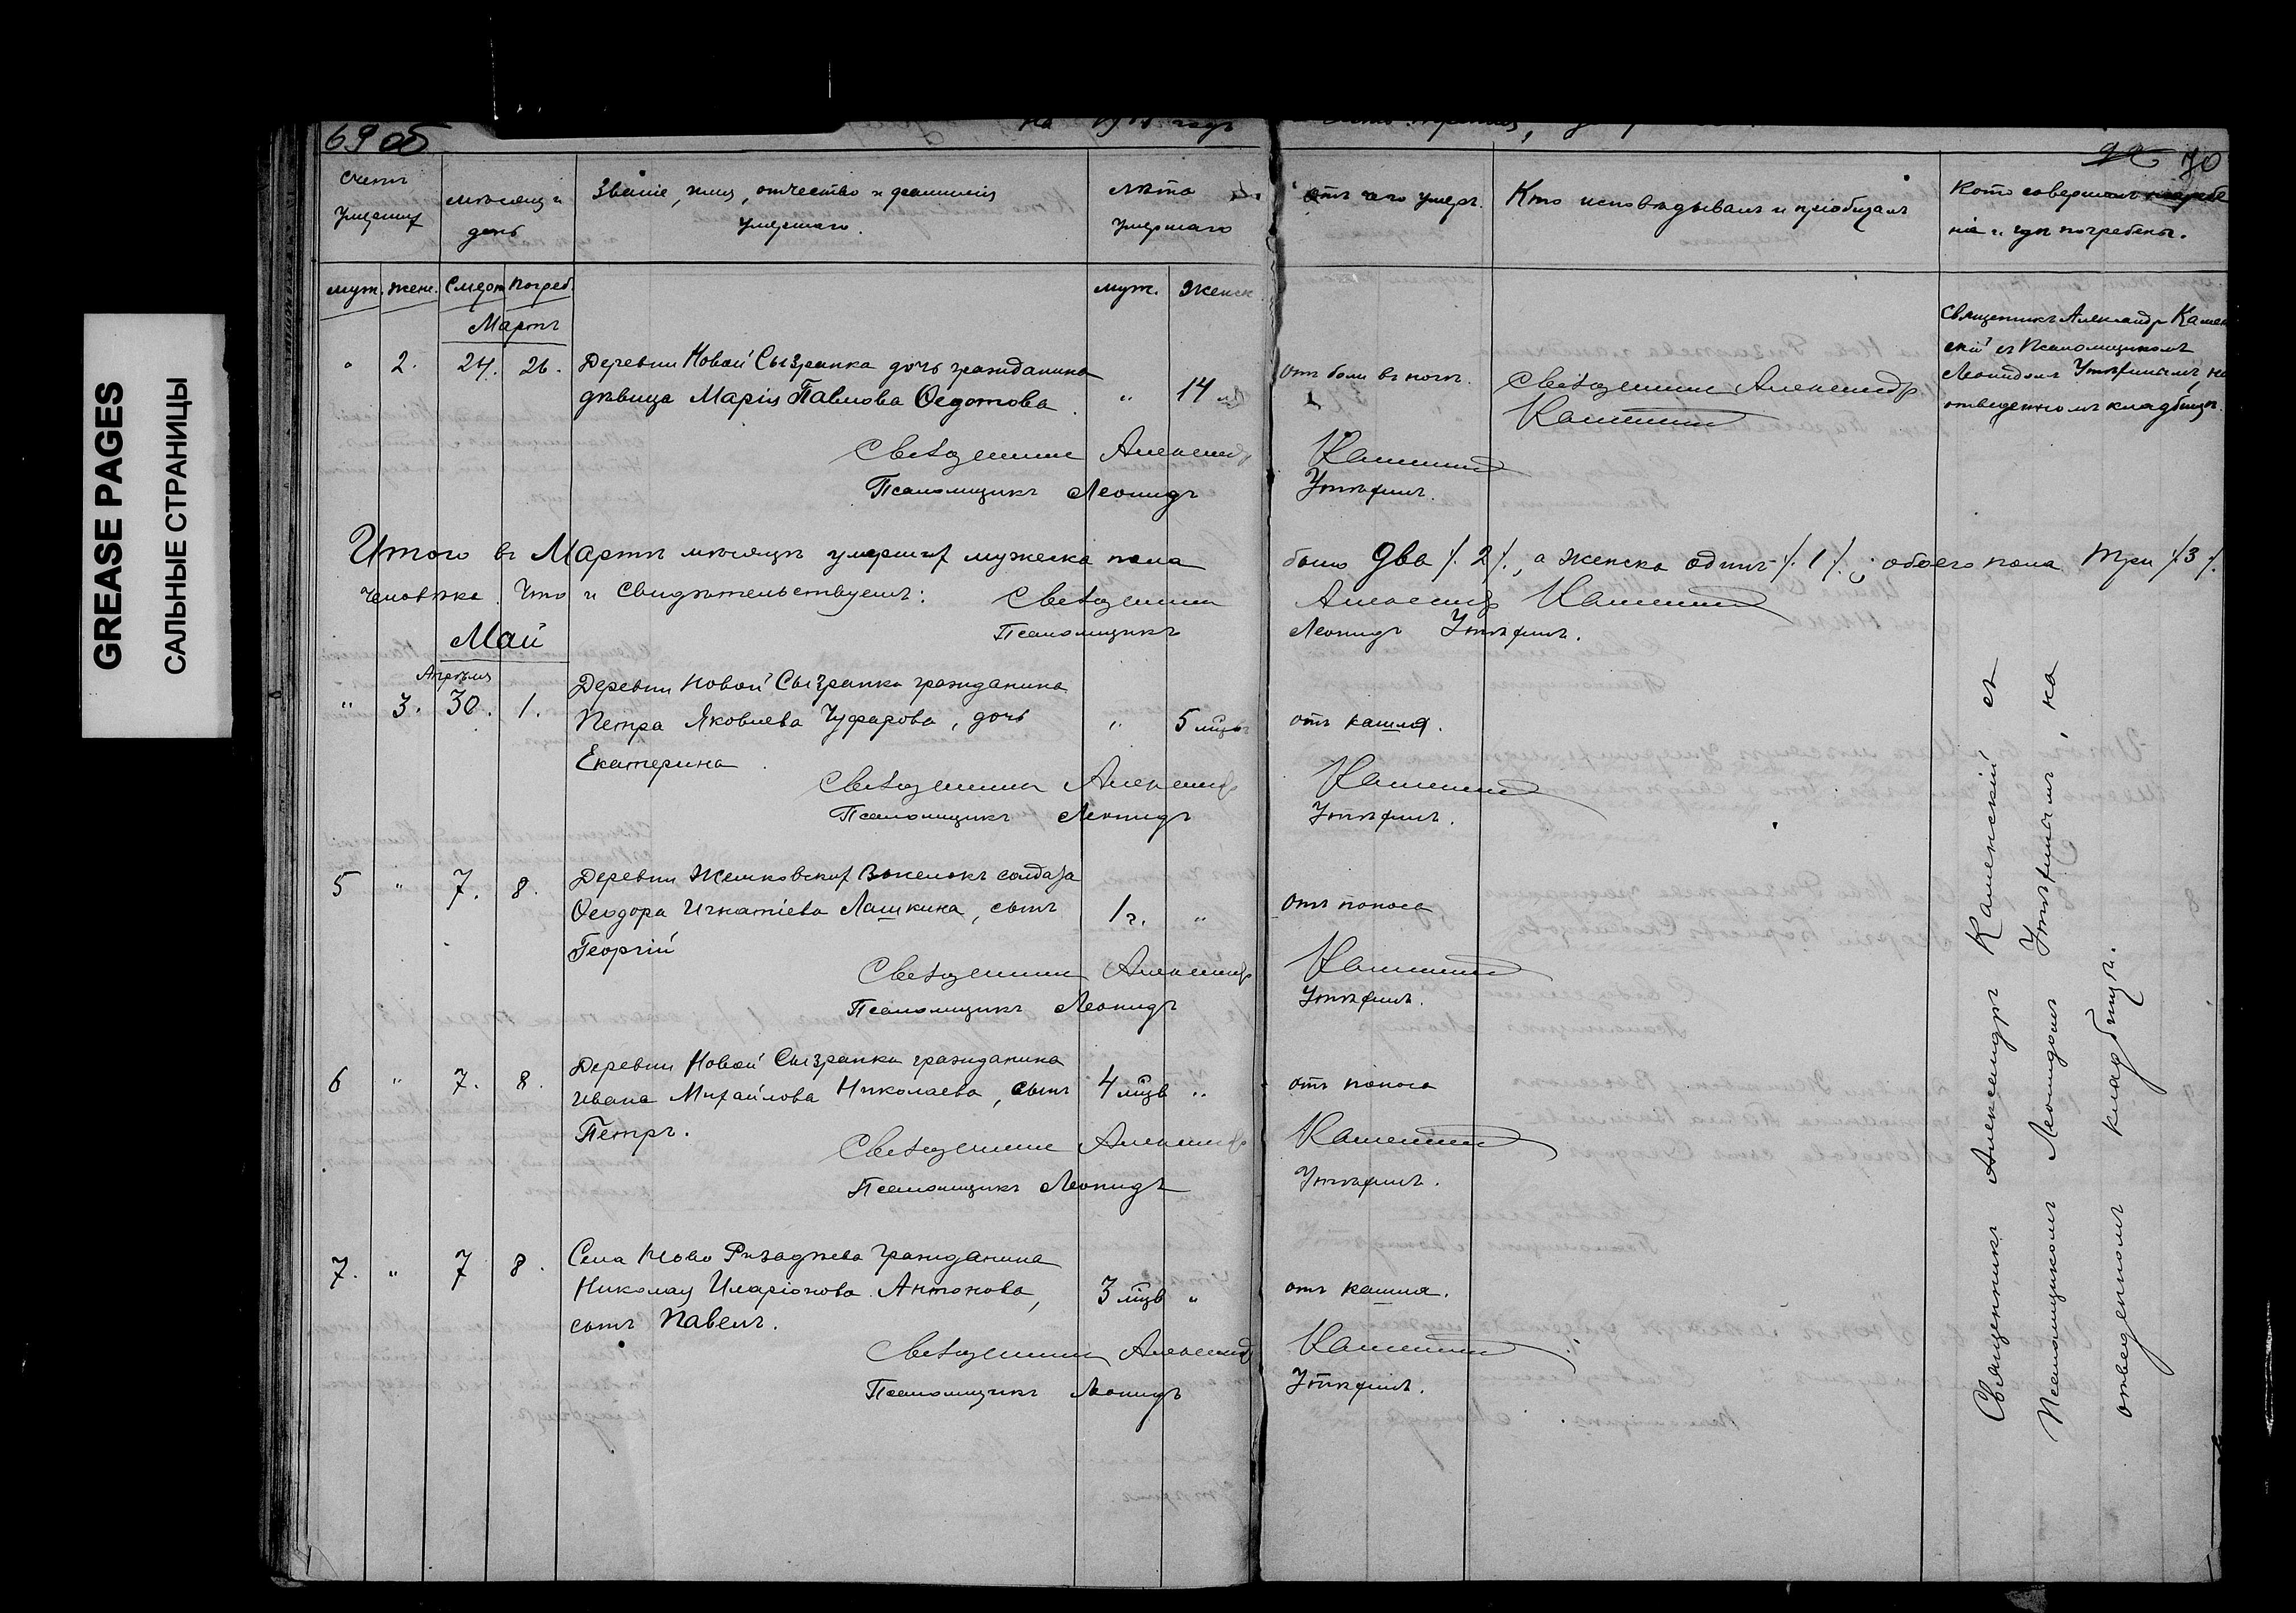 GREASE PAGES
САЛЬНЫЕ СТРАНИЦЫ
69 об
на годъ
70
Счетъ умершихъ
Мѣсяцъ и день
Званіе, имя, отчество и фамилія умершаго.
Лѣта умершаго
отъ чего умеръ.
Кто исповѣдывалъ и пріобщалъ
Кто совершалъ погребе
ніе и гдѣ погребены.
муж. жен. Смерт. Погреб.
муж. Женск.
Мартъ
" 2. 24. 26. Деревни Новой Сызранки дочь гражданина
дѣвица Марія Павлова Ѳедотова. " 14 л.
отъ боли въ ногѣ.
Священникъ Александръ
Каменскій
Священникъ Александръ Камен
скій съ Псаломщикомъ
Леонидомъ Утѣхинымъ, на
отведенномъ кладбищѣ.
Священникъ Александръ Каменскій
Псаломщикъ Леонидъ Утѣхинъ.
Итого въ Мартѣ мѣсяцѣ умершихъ мужеска пола было два /. 2 /., а женска одинъ /. 1 /.; обоего пола три /. 3 /.
человѣка. Что и свидѣтельствуемъ: Священникъ Александръ Каменскій
Псаломщикъ Леонидъ Утѣхинъ.
Май
Апрѣля
" 3. 30. 1. Деревни Новой Сызранки гражданина
Петра Яковлева Чуфарова, дочь " 5 мцвъ отъ кашля.
Екатерина.
Священникъ Александръ Каменскій
Псаломщикъ Леонидъ Утѣхинъ.
5 " 7. 8. Деревни Жемковскихъ Выселокъ солдата
Ѳеодора Игнатіева Лашкина, сынъ 1 г. " отъ поноса
Георгій
Священникъ Александръ Каменскій
Псаломщикъ Леонидъ Утѣхинъ.
6 " 7. 8. Деревни Новой Сызранки гражданина
Ивана Михайлова Николаева, сынъ 4 мцв " отъ поноса
Петръ.
Священникъ Александръ Каменскій
Псаломщикъ Леонидъ Утѣхинъ.
7. " 7 8. Села Ново Ризадѣева гражданина
Николая Иларіонова Антонова, 3 мцв " отъ кашля.
сынъ Павелъ.
Священникъ Александръ Каменскій
Псаломщикъ Леонидъ Утѣхинъ.
Священникъ Александръ Каменскій съ
Псаломщикомъ Леонидомъ Утѣхинымъ, на
отведенномъ кладбищѣ.